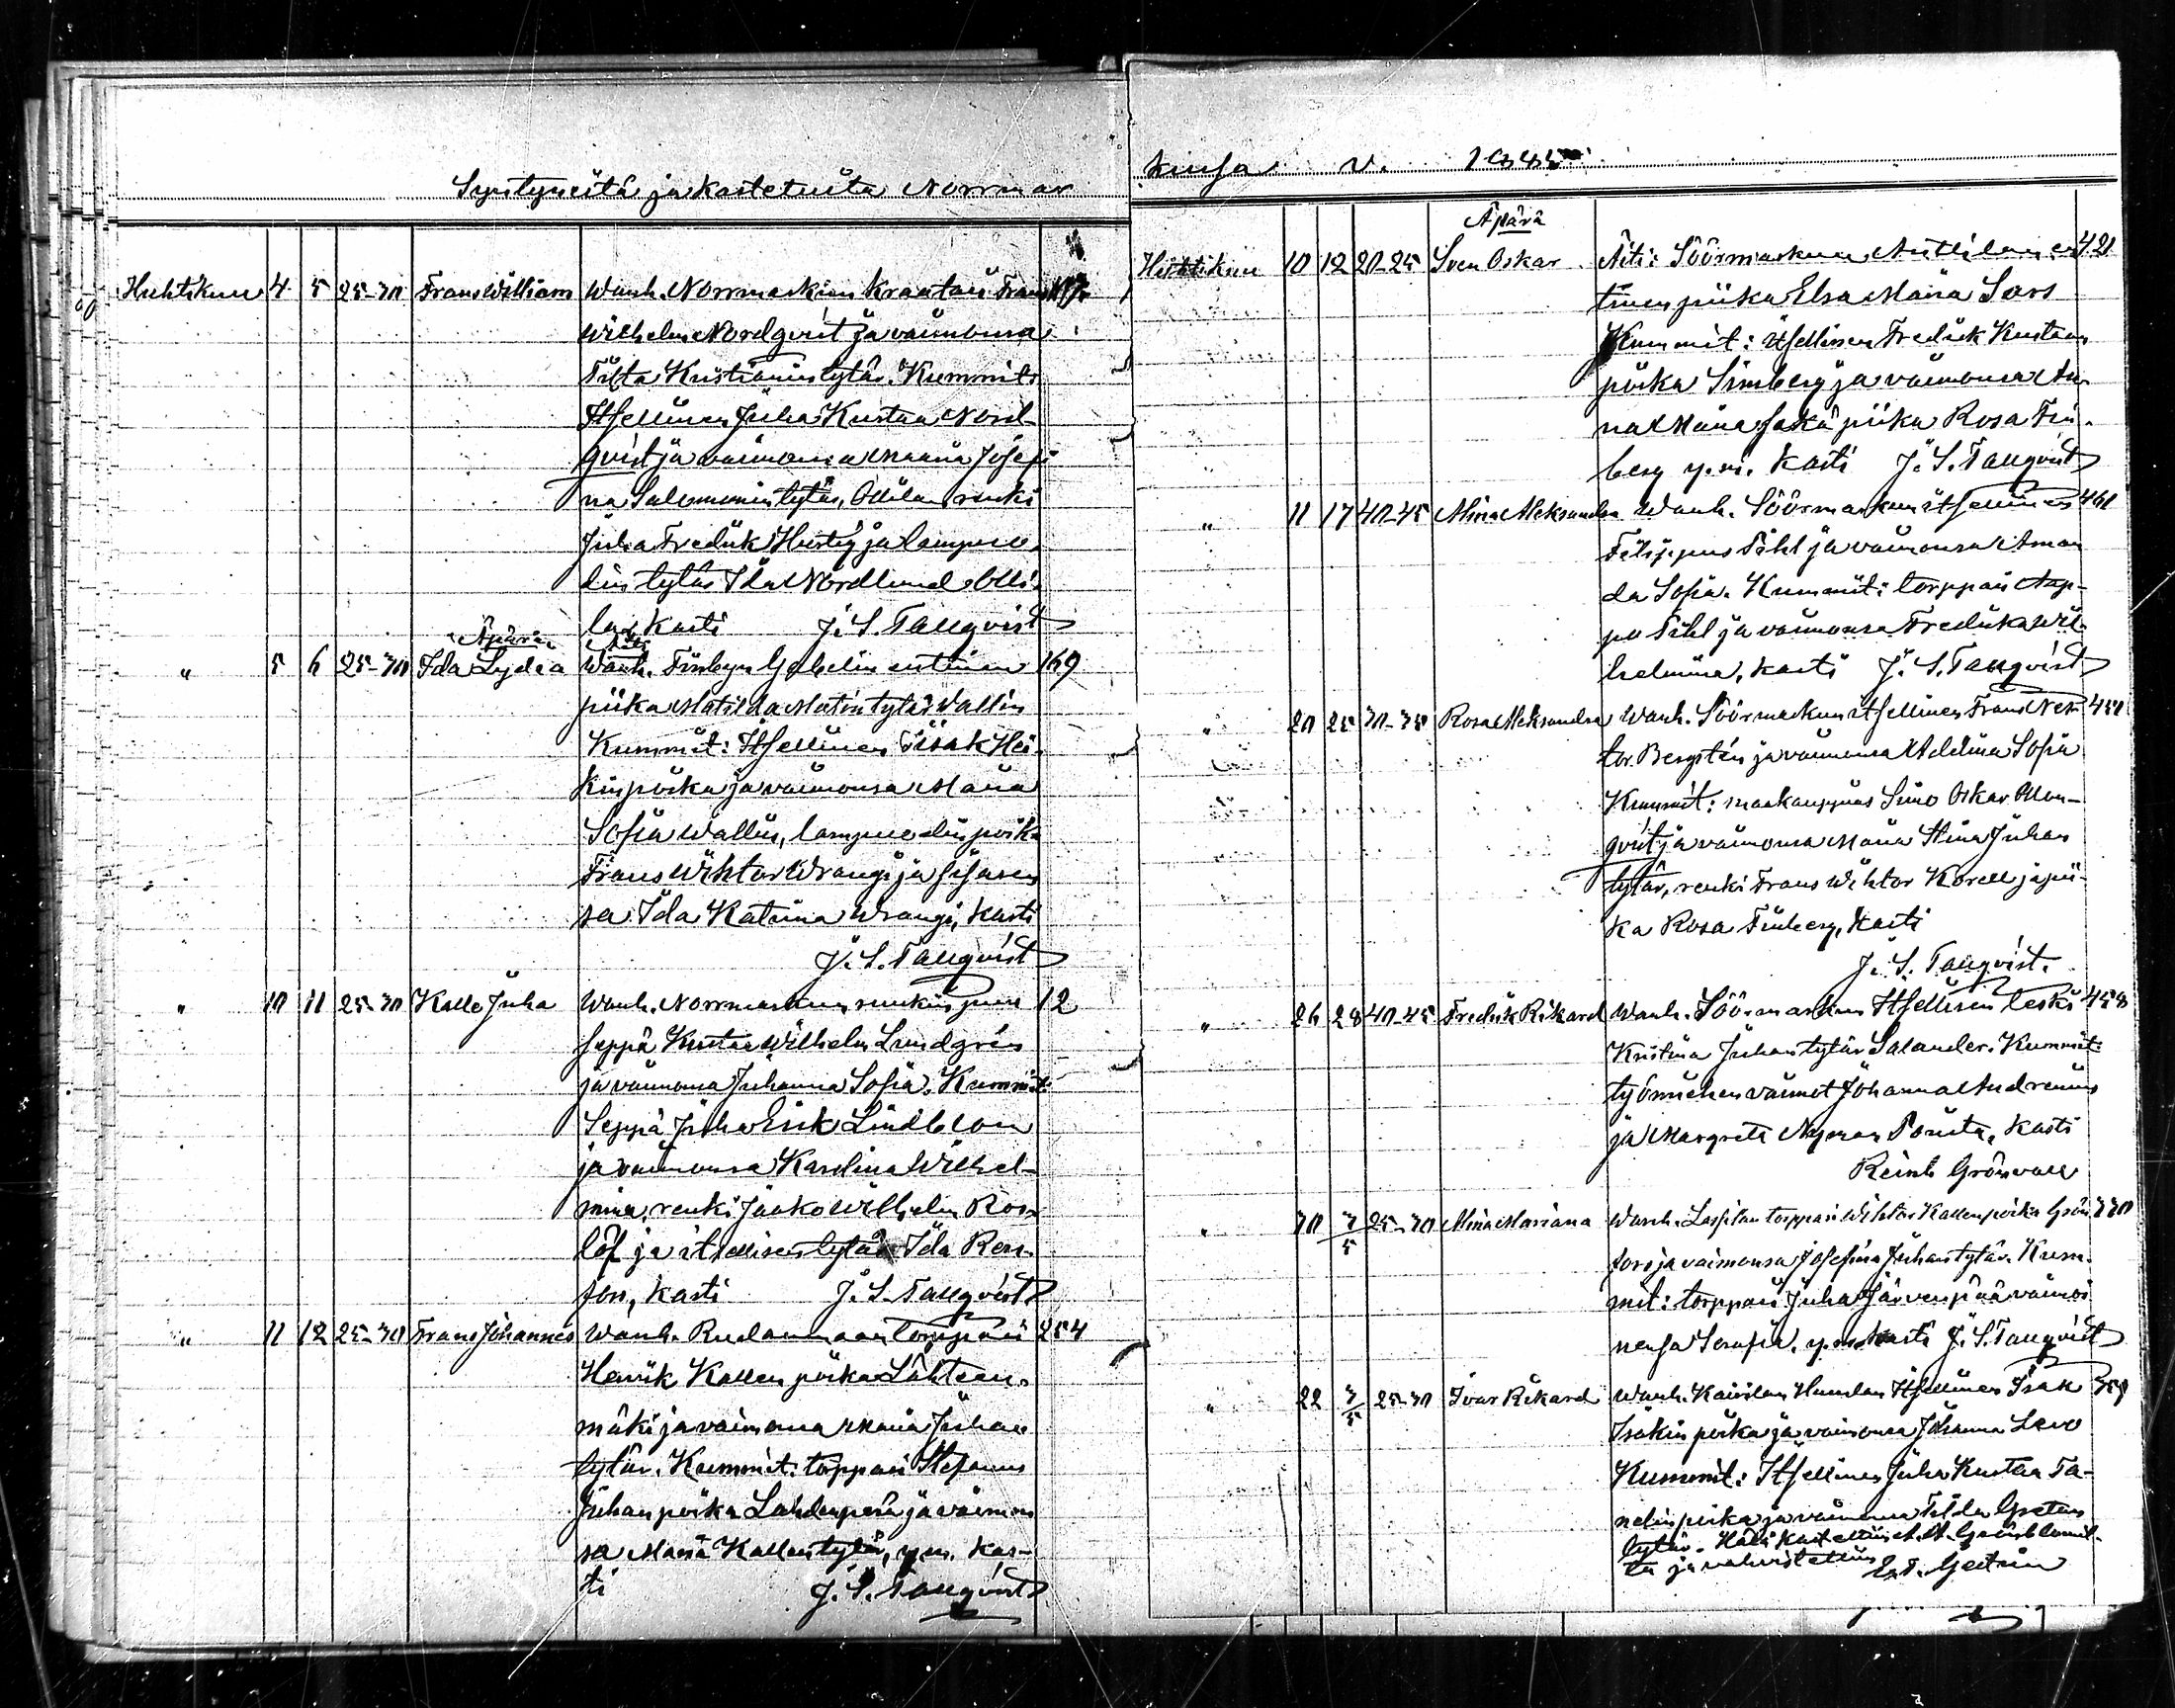 Syntyneitä ja kastetuita Norrmar
Huhtikuu 4 5 25-30 Frans William Wanh. Norrmarkun kraatari Frans
Wilhelm Nordqvist ja vaimonsa
Kristianintytär. Kummit:
Itsellinen Juha Kustaa Nord-
qvist ja vaimonsa Maria Josefi
na Salomonintytär, Ollilan renki
Juha Fredrik ja lampuo-
dintytär Ida Nordlund Olli-
lan, kasti J. S. Tallqvist
Äpärä
" 5 6 25-30 Ida Lydia Wanh. entinen 169
piika Matilda Matintytär Wallin
Kummit: Itsellinen Iisak Hei-
kinpoika ja vaimonsa Maria
Sofia Wallin, lampuodinpoika
Frans Wihtor Wrangi ja sisaren
sa Ida Katrina Wrangi, kasti
J. S. Tallqvist
" 10 11 25-30 Kalle Juha Wanh. Norrmarkun ruukin puu 12
seppä Kustaa Wilhelm Lundgrén
ja vaimonsa Juhanna Sofia. Kummit:
Seppä Juha Erik Lindblom
ja vaimonsa Karolina Wilhel-
mina, renki Jaako Wilhelm Ros
löf ja itsellisentytär Ida Ren-
fors, kasti J. S. Tallqvist
" 11 12 25-30 Frans Johannes Wanh. Rudanmaan torppari 254
Henrik Kallenpoika Lähteen-
mäki ja vaimonsa Maria Juhan
tytär. Kummit: torppari Stefanus
Juhanpoika Lahdenperä ja vaimon
sa Maria Kallentytär, y.m. kas-
ti J. S. Tallqvist
kussa v.
Äpärä
Huhtikuu 10 12 20-25 Sven Oskar Äiti: Söörmarkun Anttilan en 421
tinen piika Elsa Maria Sars
Kummit: itsellinen Fredrik Kustaan
poika Simberg ja vaimonsa An-
na Maria sekä piika Rosa Fin-
berg y.m. kasti J. S. Tallqvist
" 11 17 40-45 Miina Aleksandra Wanh. Söörmarkun itsellinen 461
Filippus Pihl ja vaimonsa Aman
da Sofia. Kummit: torppari Aap-
po Pihl ja vaimonsa Fredrika Wil-
helmiina, kasti J. S. Tallqvist
" 20 25 30-35 Rosa Aleksandra Wanh. Söörmarkun itsellinen Frans Nes-
tor Bergstén ja vaimonsa Adelina Sofia
Kummit: maakauppias Simo Oskar Alm-
qvist ja vaimonsa Maria Stina Juhan
tytär, renki Frans Wihtor Korell ja pii-
ka Rosa Finberg, kasti
J. S. Tallqvist.
" 26 28 40-45 Fredrik Rikard Wanh. Söörmarkun Itsellisen leski 458
Kristina Juhantytär Salander. Kummit:
työmiehen vaimot Johanna Andreniin
ja Margreta Nyman Porista, kasti
Reinh. Grönvall
" 30 3/5 25-30 Miina Mariana Wanh. Lassilan torppari Wihtor Kallenpoika Grön 330
fors ja vaimonsa Josefina Juhantytär. Kum-
mit: torppari Juha Järvenpää vaimoi
nensa Serafia, y.m. kasti J. S. Tallqvist
" 22 3/5 25-30 Ivar Rikard Wanh. Kairilan Itsellinen Isak
Isakinpoika ja vaimonsa Johanna Levo
Kummit: Itsellinen Juha Kustaa Ta-
nelinpoika ja vaimonsa Tilda Gretan
tytär. Hätä
ta ja vahvistettiin